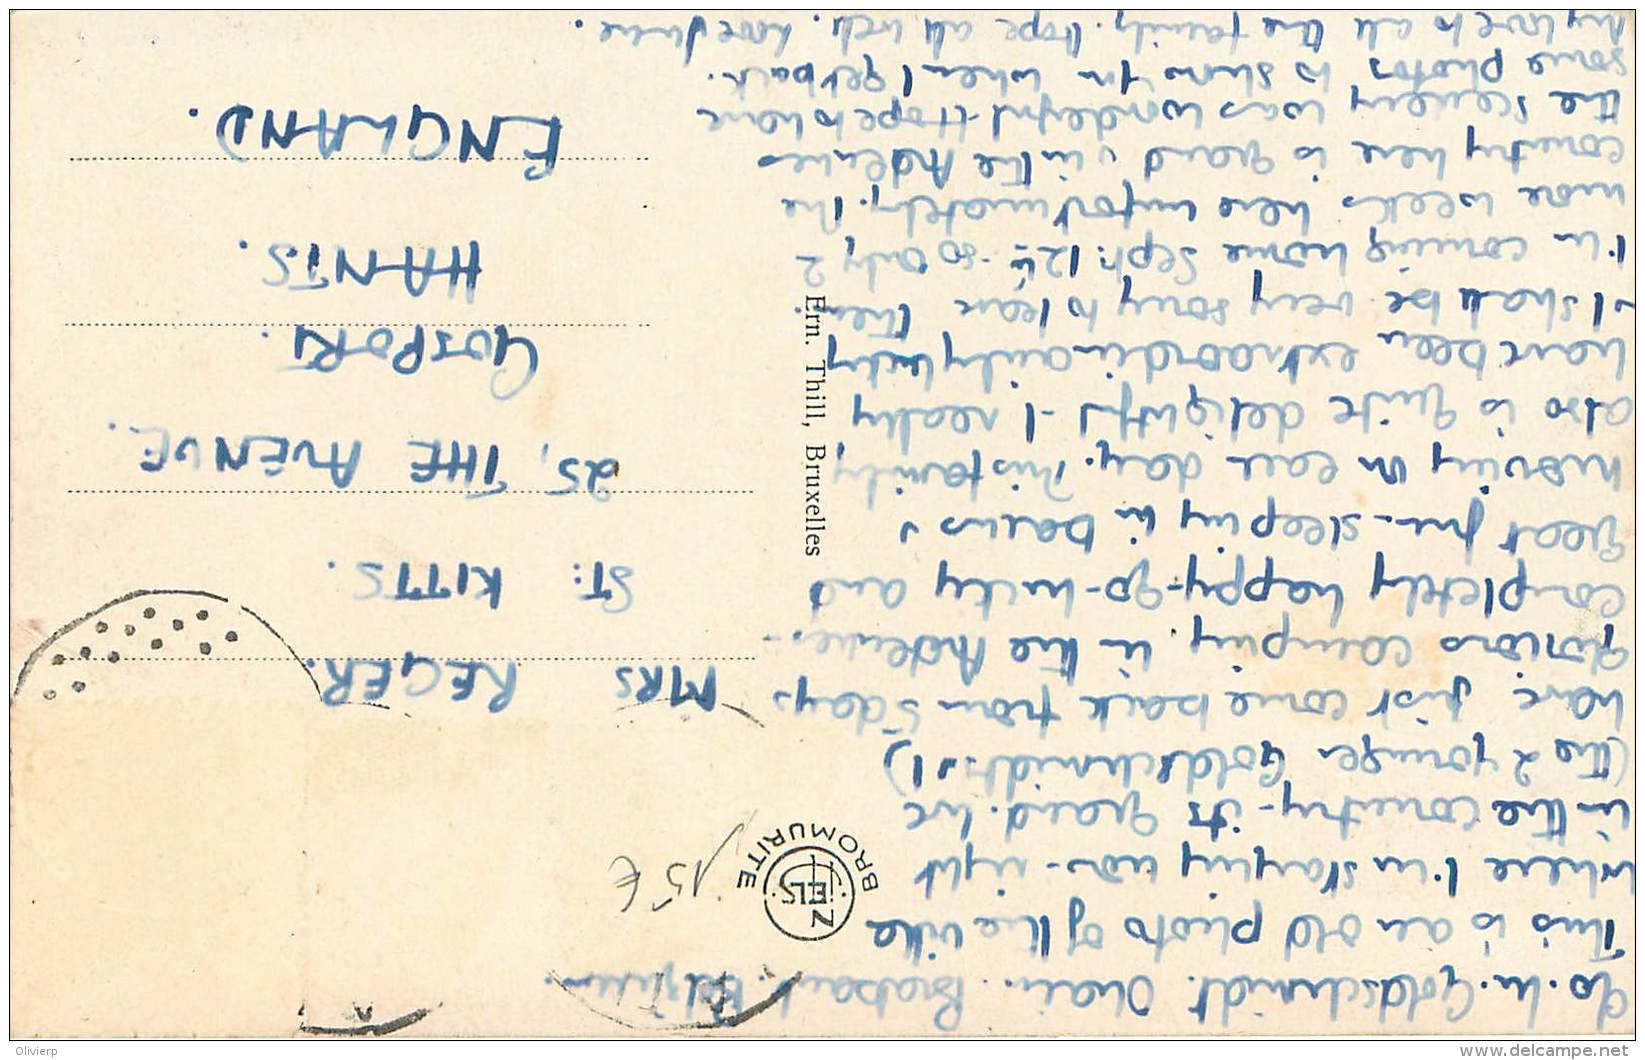 c/o. M. Goldschmidt. Ohain. Brabant. Belgium.
This is an old photo of the villa
where I'm staying now - right
in the country - its grand. We
(the 2 younger Goldschmidts & I)
have just come back from 5 days
glorious camping in the Ardennes -
completely happy-go-lucky and
great fun - sleeping in barns &
moving on each day. This family
also is quite delightful - I really
have been extraordinarily lucky
& I shall be very sorry to leave them.
I'm coming home Sept: 12th - so only 2
more weeks here unfortunately. The
country here is grand & in the Ardennes
the scenery was wonderful - Hope to have
some photos to show yr when I get back.
My love to all the family. Hope all well. Love June.
MRS REGER.
ST: KITTS.
25, THE AVENUE.
GOSPORT.
HANTS.
ENGLAND.
NELS
BROMURITE
15 €
Ern. Thill, Bruxelles
Olivierp
www.delcampe.net